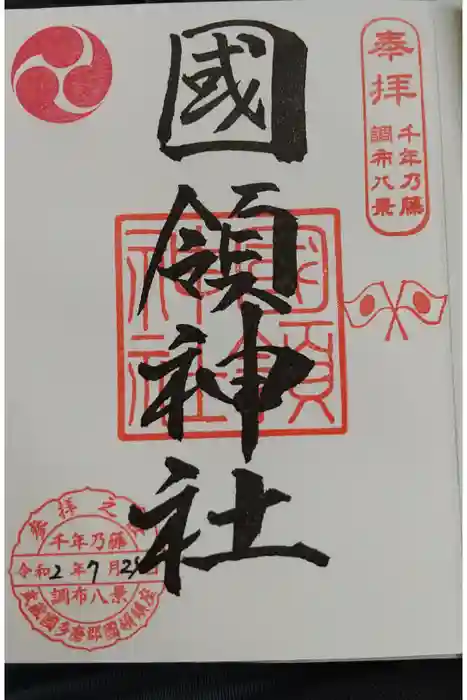 奉拝
千年乃藤
調布八景
國領神社
国領
神社
参拝之
千年乃藤
令和2年7月23
調布八景
武蔵國多磨郡國領鎮座